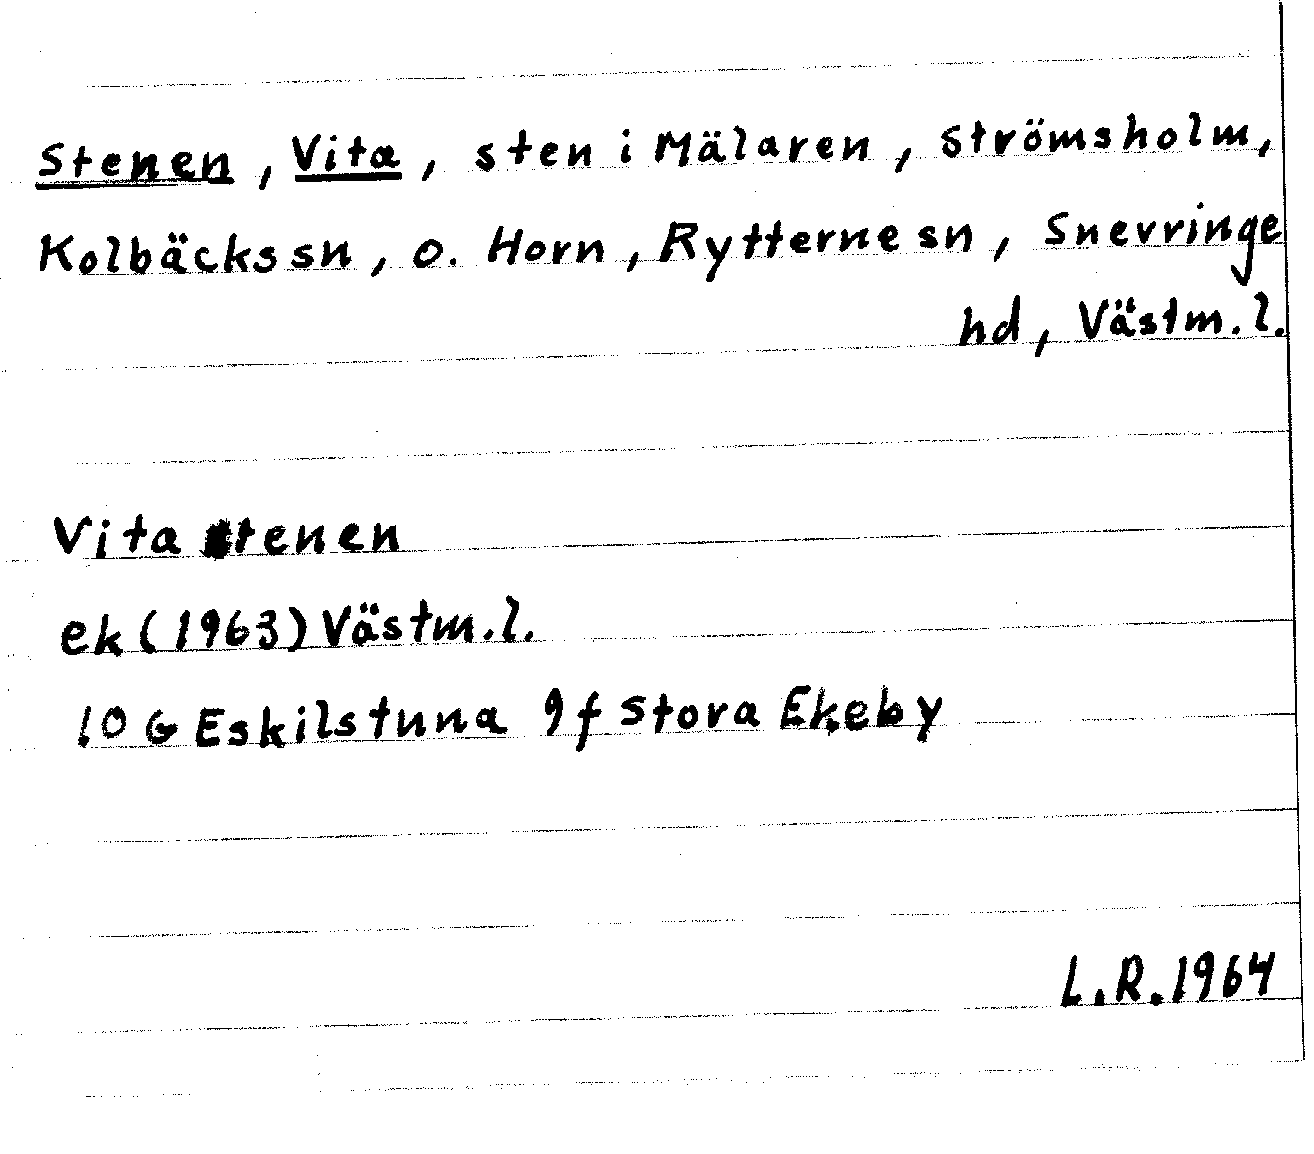 Stenen, Vita, sten i Mälaren, Strömsholm,
Kolbäckssn, o. Horn, Rytternesn, Snevringe
hd, Västm.l.
Vita stenen
ek (1963) Västm.l.
10 G Eskilstuna 9f Stora Ekeby
L.R. 1964